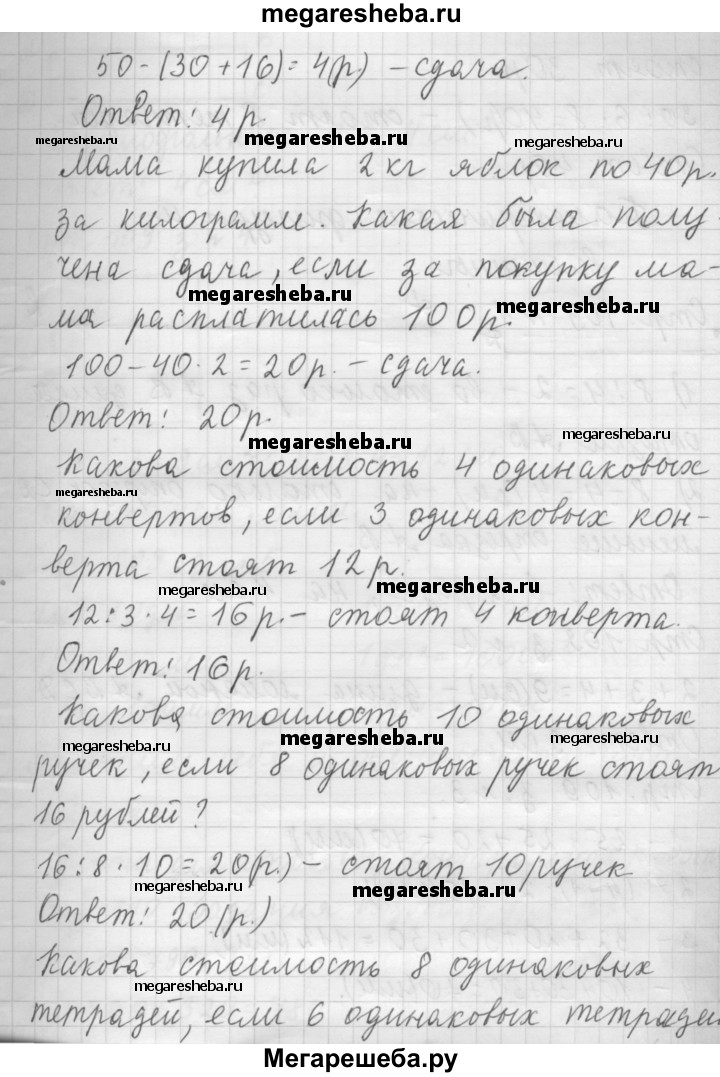 megaresheba.ru
50 - (30 + 16) = 4(р) - сдача.
Ответ: 4 р.
megaresheba.ru megaresheba.ru megaresheba.ru
Мама купила 2 кг яблок по 40 р.
за килограмм. Какая была полу-
чена сдача, если за покупку ма-
megaresheba.ru megaresheba.ru
ма расплатилась 100 р.
100 - 40 · 2 = 20 р. - сдача.
Ответ: 20 р.
megaresheba.ru megaresheba.ru
Какова стоимость 4 одинаковых
megaresheba.ru
конвертов, если 3 одинаковых кон-
верта стоят 12 р.
megaresheba.ru megaresheba.ru
12 : 3 · 4 = 16 р. - стоят 4 конверта.
Ответ: 16 р.
Какова стоимость 10 одинаковых
megaresheba.ru megaresheba.ru megaresheba.ru
ручек, если 8 одинаковых ручек стоят
16 рублей?
16 : 8 · 10 = 20(р.) - стоят 10 ручек
megaresheba.ru megaresheba.ru
Ответ: 20 (р.)
Какова стоимость 8 одинаковых
megaresheba.ru megaresheba.ru
тетрадей, если 6 одинаковых тетрадей
Мегарешеба.ру